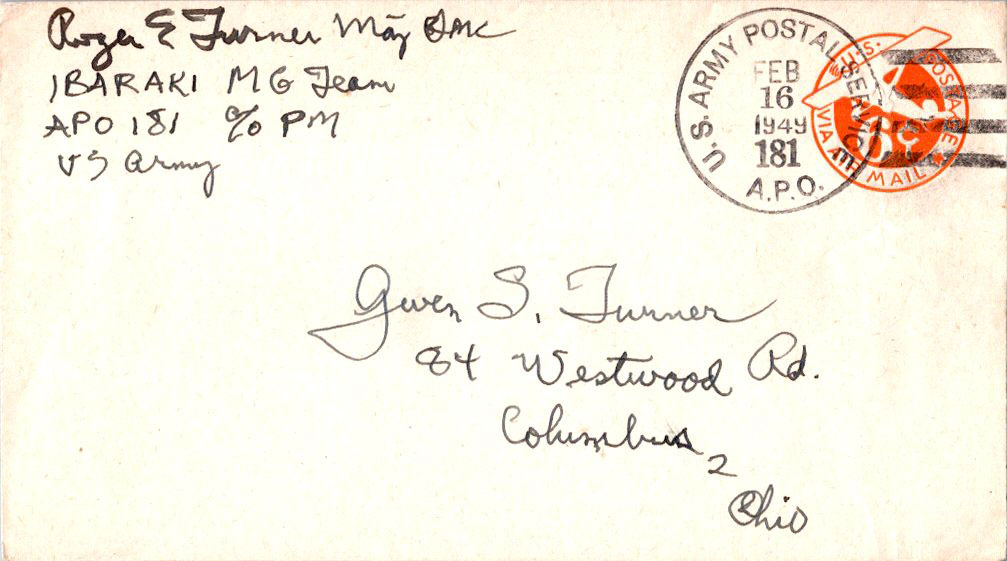 Roger E Turner Maj QMC
IBARAKI MG Team
APO 181 c/o PM
US Army
U.S. ARMY POSTAL SERVICE
FEB
16
1949
181
A.P.O.
U.S. POSTAGE
6¢
VIA AIR MAIL
Gwen S. Turner
84 Westwood Rd.
Columbus 2
Ohio